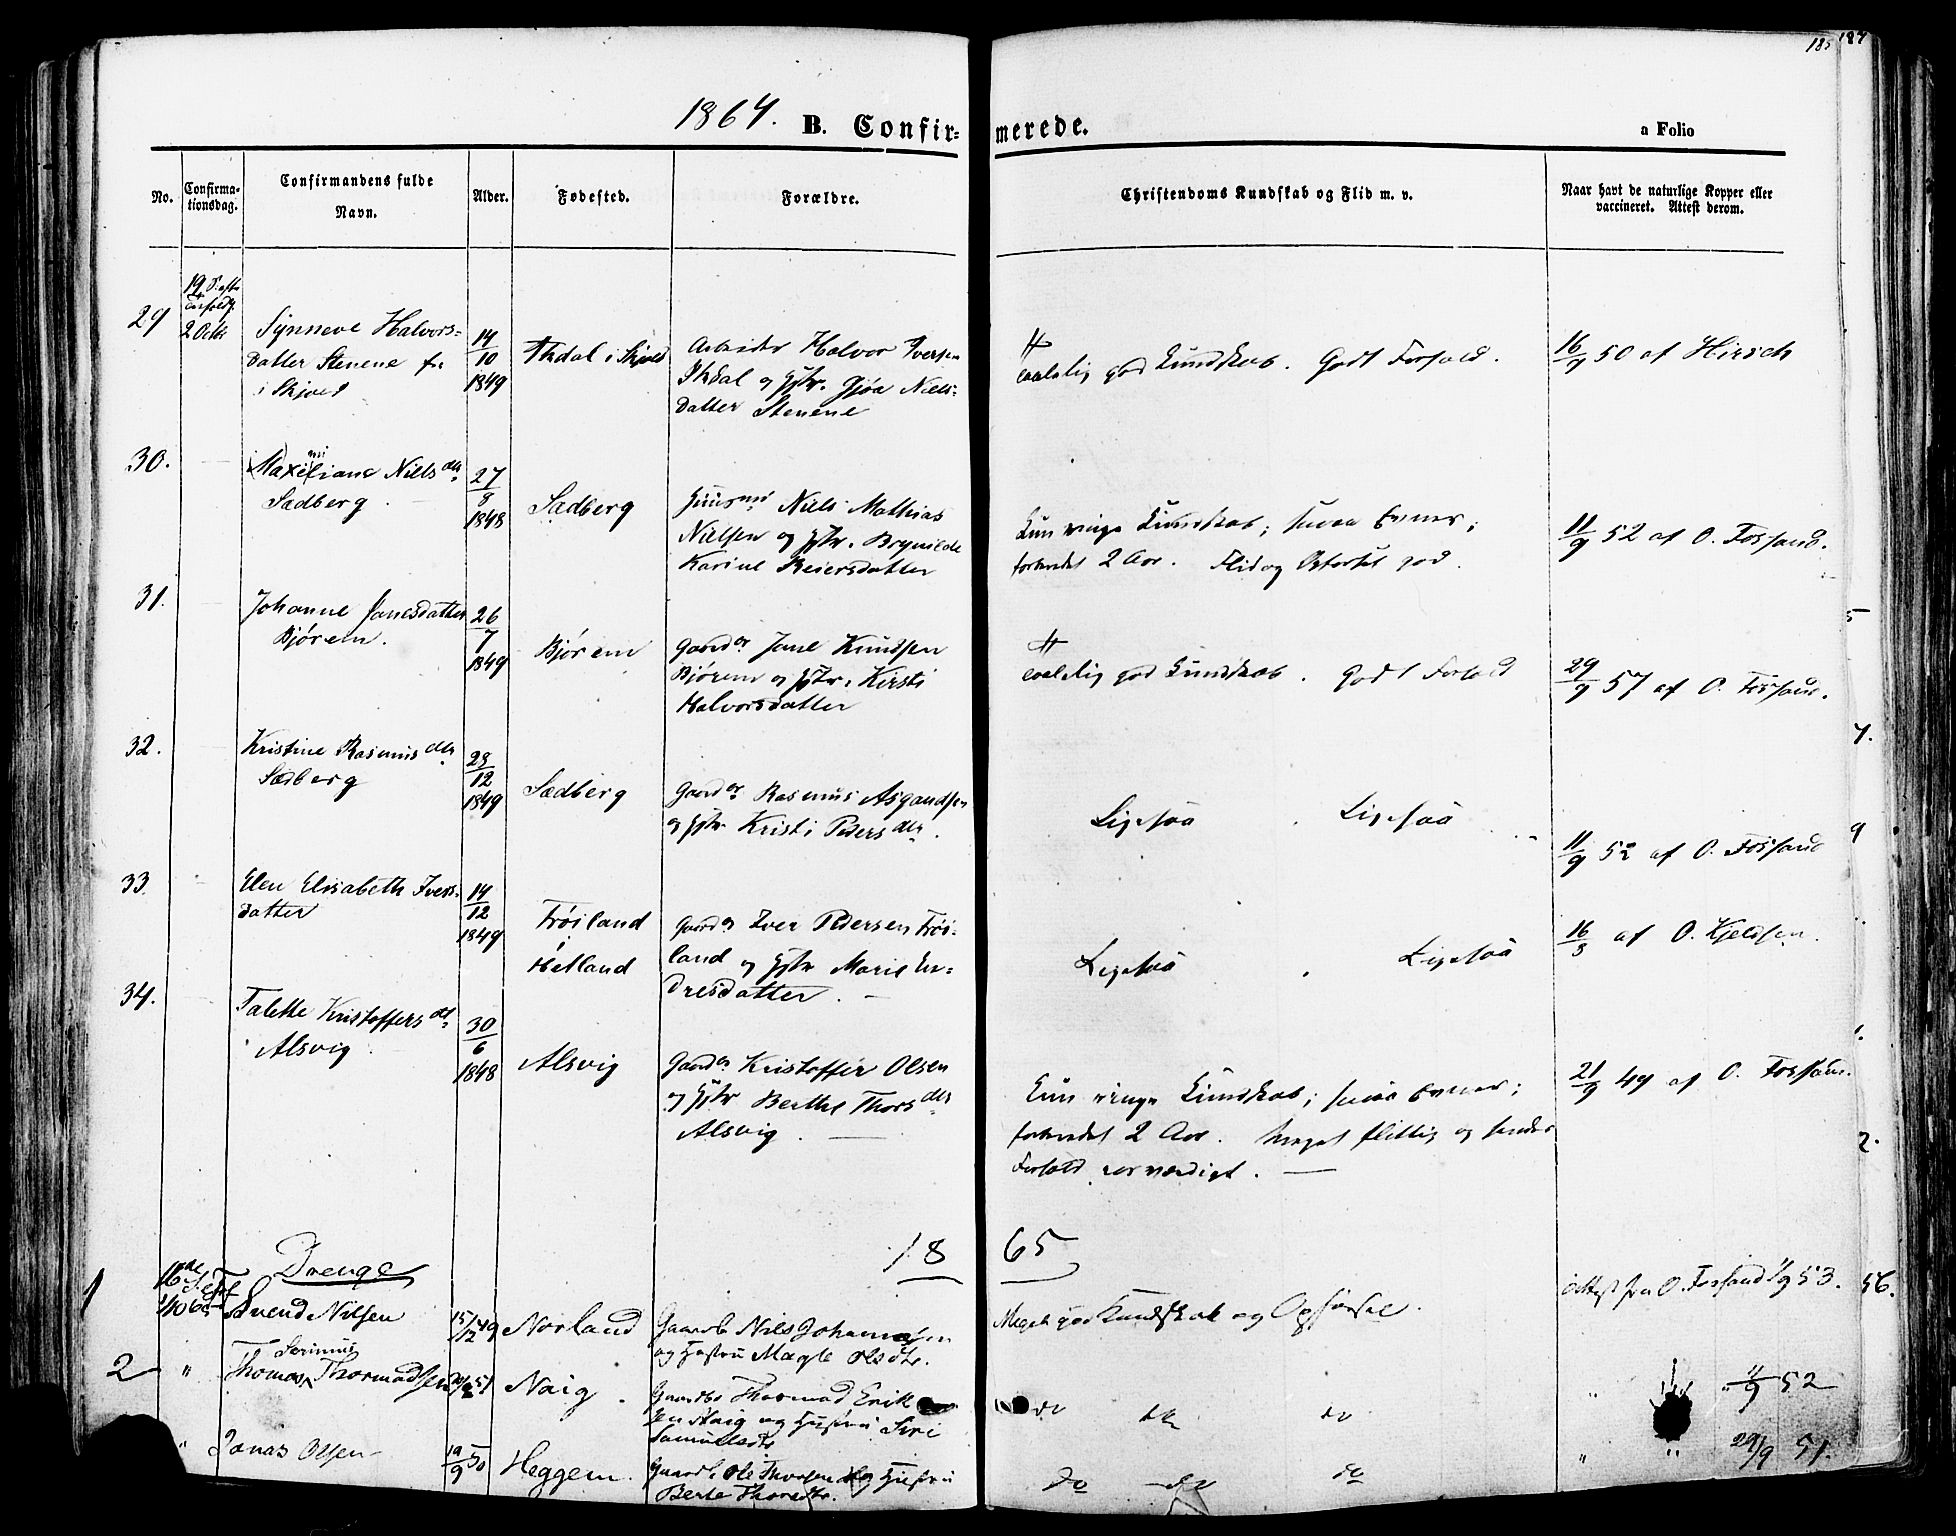 185 187
1864. B. Confir- merede.
a Folio
No. Confirma-tionsdag. Confirmandens fulde Navn. Alder. Fødested. Forældre. Christendoms Kundskab og Flid m. v. Naar havt de naturlige Kopper eller vaccineret. Attest derom.
29 19 S. eft. 2 Octb Synneve Halvors-
datter Stenene fra
i Skjold
14/10 1849
Ikdal i Skjold
Arbeider Halvor Iversen
Ikdal og Hstr. Gjøa Niels-
datter Stenene
God Kundskab. Godt Forhold.
16/9 50 af Hirsch
30. Maximiliane Niels dtr
Sædberg
27/8 1848
Sædberg
Huusmd Niels Mathias
Nielsen og Hstr. Brynilde
Karine Reiersdatter
Kun ringe Kundskab; smaa Evner;
forberedet 2 Aar. Flid og Opførsel god.
11/9 52 af O. Fossand.
31. Johanne Janesdatter
Bjørem.
26/7 1849
Bjørem
Gaardbr Jane Knudsen
Bjørem og Hstr. Kirsti
Halvorsdatter
god Kundskab. Godt Forhold
29/9 57 af O. Fossand.
32. Kristine Rasmus dtr
Sædberg
28/12 1849
Sædberg
Gaardbr Rasmus Asgaudsen
og Hstr Kristi Peders dtr.
Ligesaa . Ligesaa
11/9 52 af O. Fossand
33. Elen Elisabeth Ivers-
datter
14/12 1849
Frøiland
i
Hetland
Gaardbr Iver Pedersen Frøi-
land og Hstr Marie En-
dresdatter. —
Ligesaa . Ligesaa
16/3 af O. Kjeldsen.
34. Talette Kristoffers dtr
Alsvig
30/6 1848
Alsvig
Gaardbr Kristoffer Olsen
og Hstr Berthe Thors dtr
Alsvig. —
Kun ringe Kundskab; smaa Evner;
forberedet 2 Aar. Meget flittig og hendes
Forhold rosværdigt. —
21/9 49 af O. Fossand.
18 65
Drenge
1 Svend Nilsen
15/12 49
Norland
Gaardb Nils Johannesen
og Hustru Magle Olsdtr.
Meget god Kundskab og Opførsel.
Attest fra O. Fossand 1/9 53.
56.
2 " Thomas Serinius Thormodsen
51
Naig.
Gaardbr Thormod Erik
sen Naig og Hustru Siri
Samuelsdtr
do do do
" " 11/9 52
" Jonas Olsen
19/9 50
Heggem.
Gaardb. Ole Thorsen og Hustru
Berte Thoresdtr.
do do do
" " 29/9 51.
5
7.
9
2.